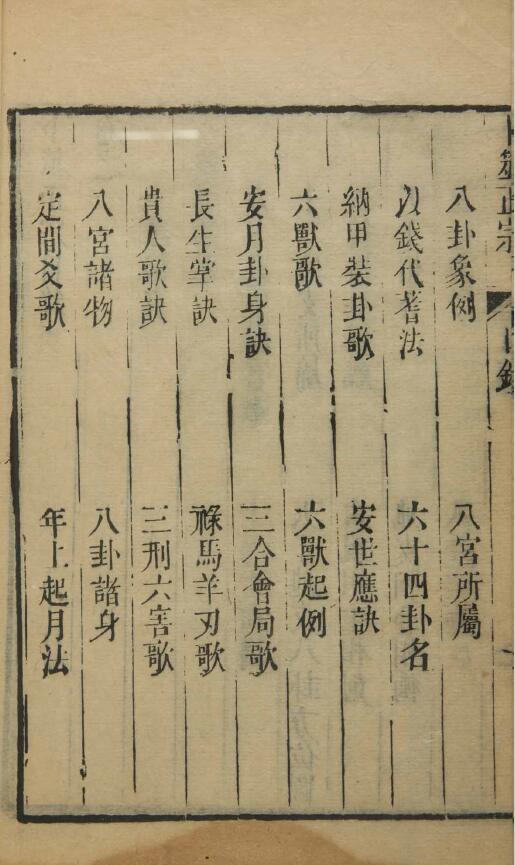 卜筮正宗 目録
八卦象例 八宮所屬
以錢代蓍法 六十四卦名
納甲裝卦歌 安世應訣
六獸歌 六獸起例
安月卦身訣 三合會局歌
長生掌訣 祿馬羊刃歌
貴人歌訣 三刑六害歌
八宮諸物 八卦諸身
定間爻歌 年上起月法